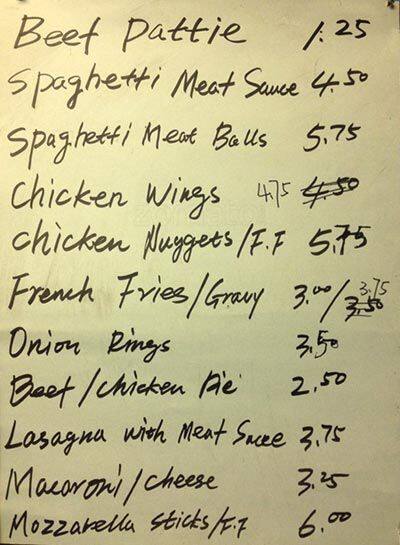 Beef Pattie 1.25
Spaghetti Meat Sauce 4.50
Spaghetti Meat Balls 5.75
Chicken Wings 4.75 4.50
Chicken Nuggets/F.F 5.75
French Fries/Gravy 3.00/3.50 3.75
Onion Rings 3.50
Beef/Chicken Pie 2.50
Lasagna with Meat Sauce 3.75
Macaroni/Cheese 3.25
Mozzarella Sticks/F.F 6.00